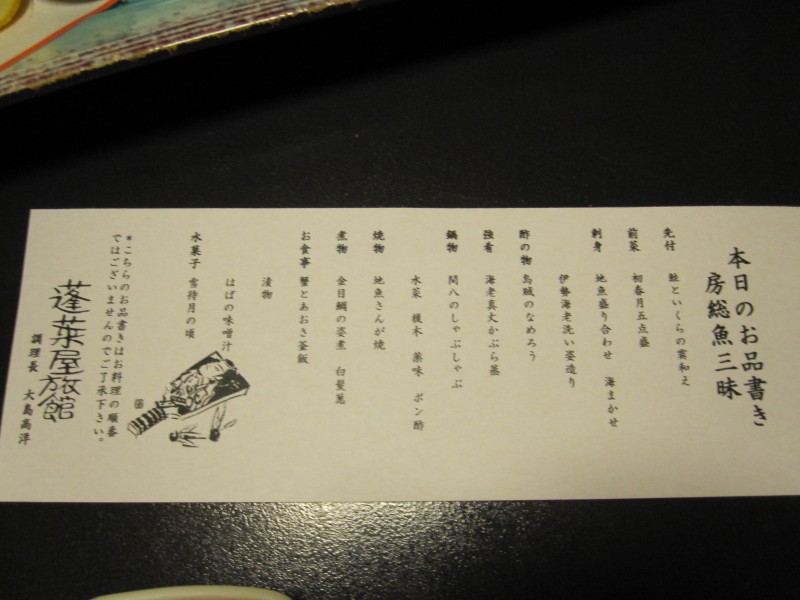 本日のお品書き
房総魚三昧
先付 鮭といくらの霙和え
前菜 初春月五点盛
刺身 地魚盛り合わせ 海まかせ
伊勢海老洗い姿造り
酢の物 烏賊のなめろう
強肴 海老真丈かぶら蒸
鍋物 関八のしゃぶしゃぶ
水菜 榎木 薬味 ポン酢
焼物 地魚さんが焼
煮物 金目鯛の姿煮 白髪葱
お食事 蟹とあおさ釜飯
漬物
はばの味噌汁
水菓子 雪待月の頃
*こちらのお品書きはお料理の順番
ではございませんのでご了承下さい。
蓬莱屋旅館
調理長 大島高洋